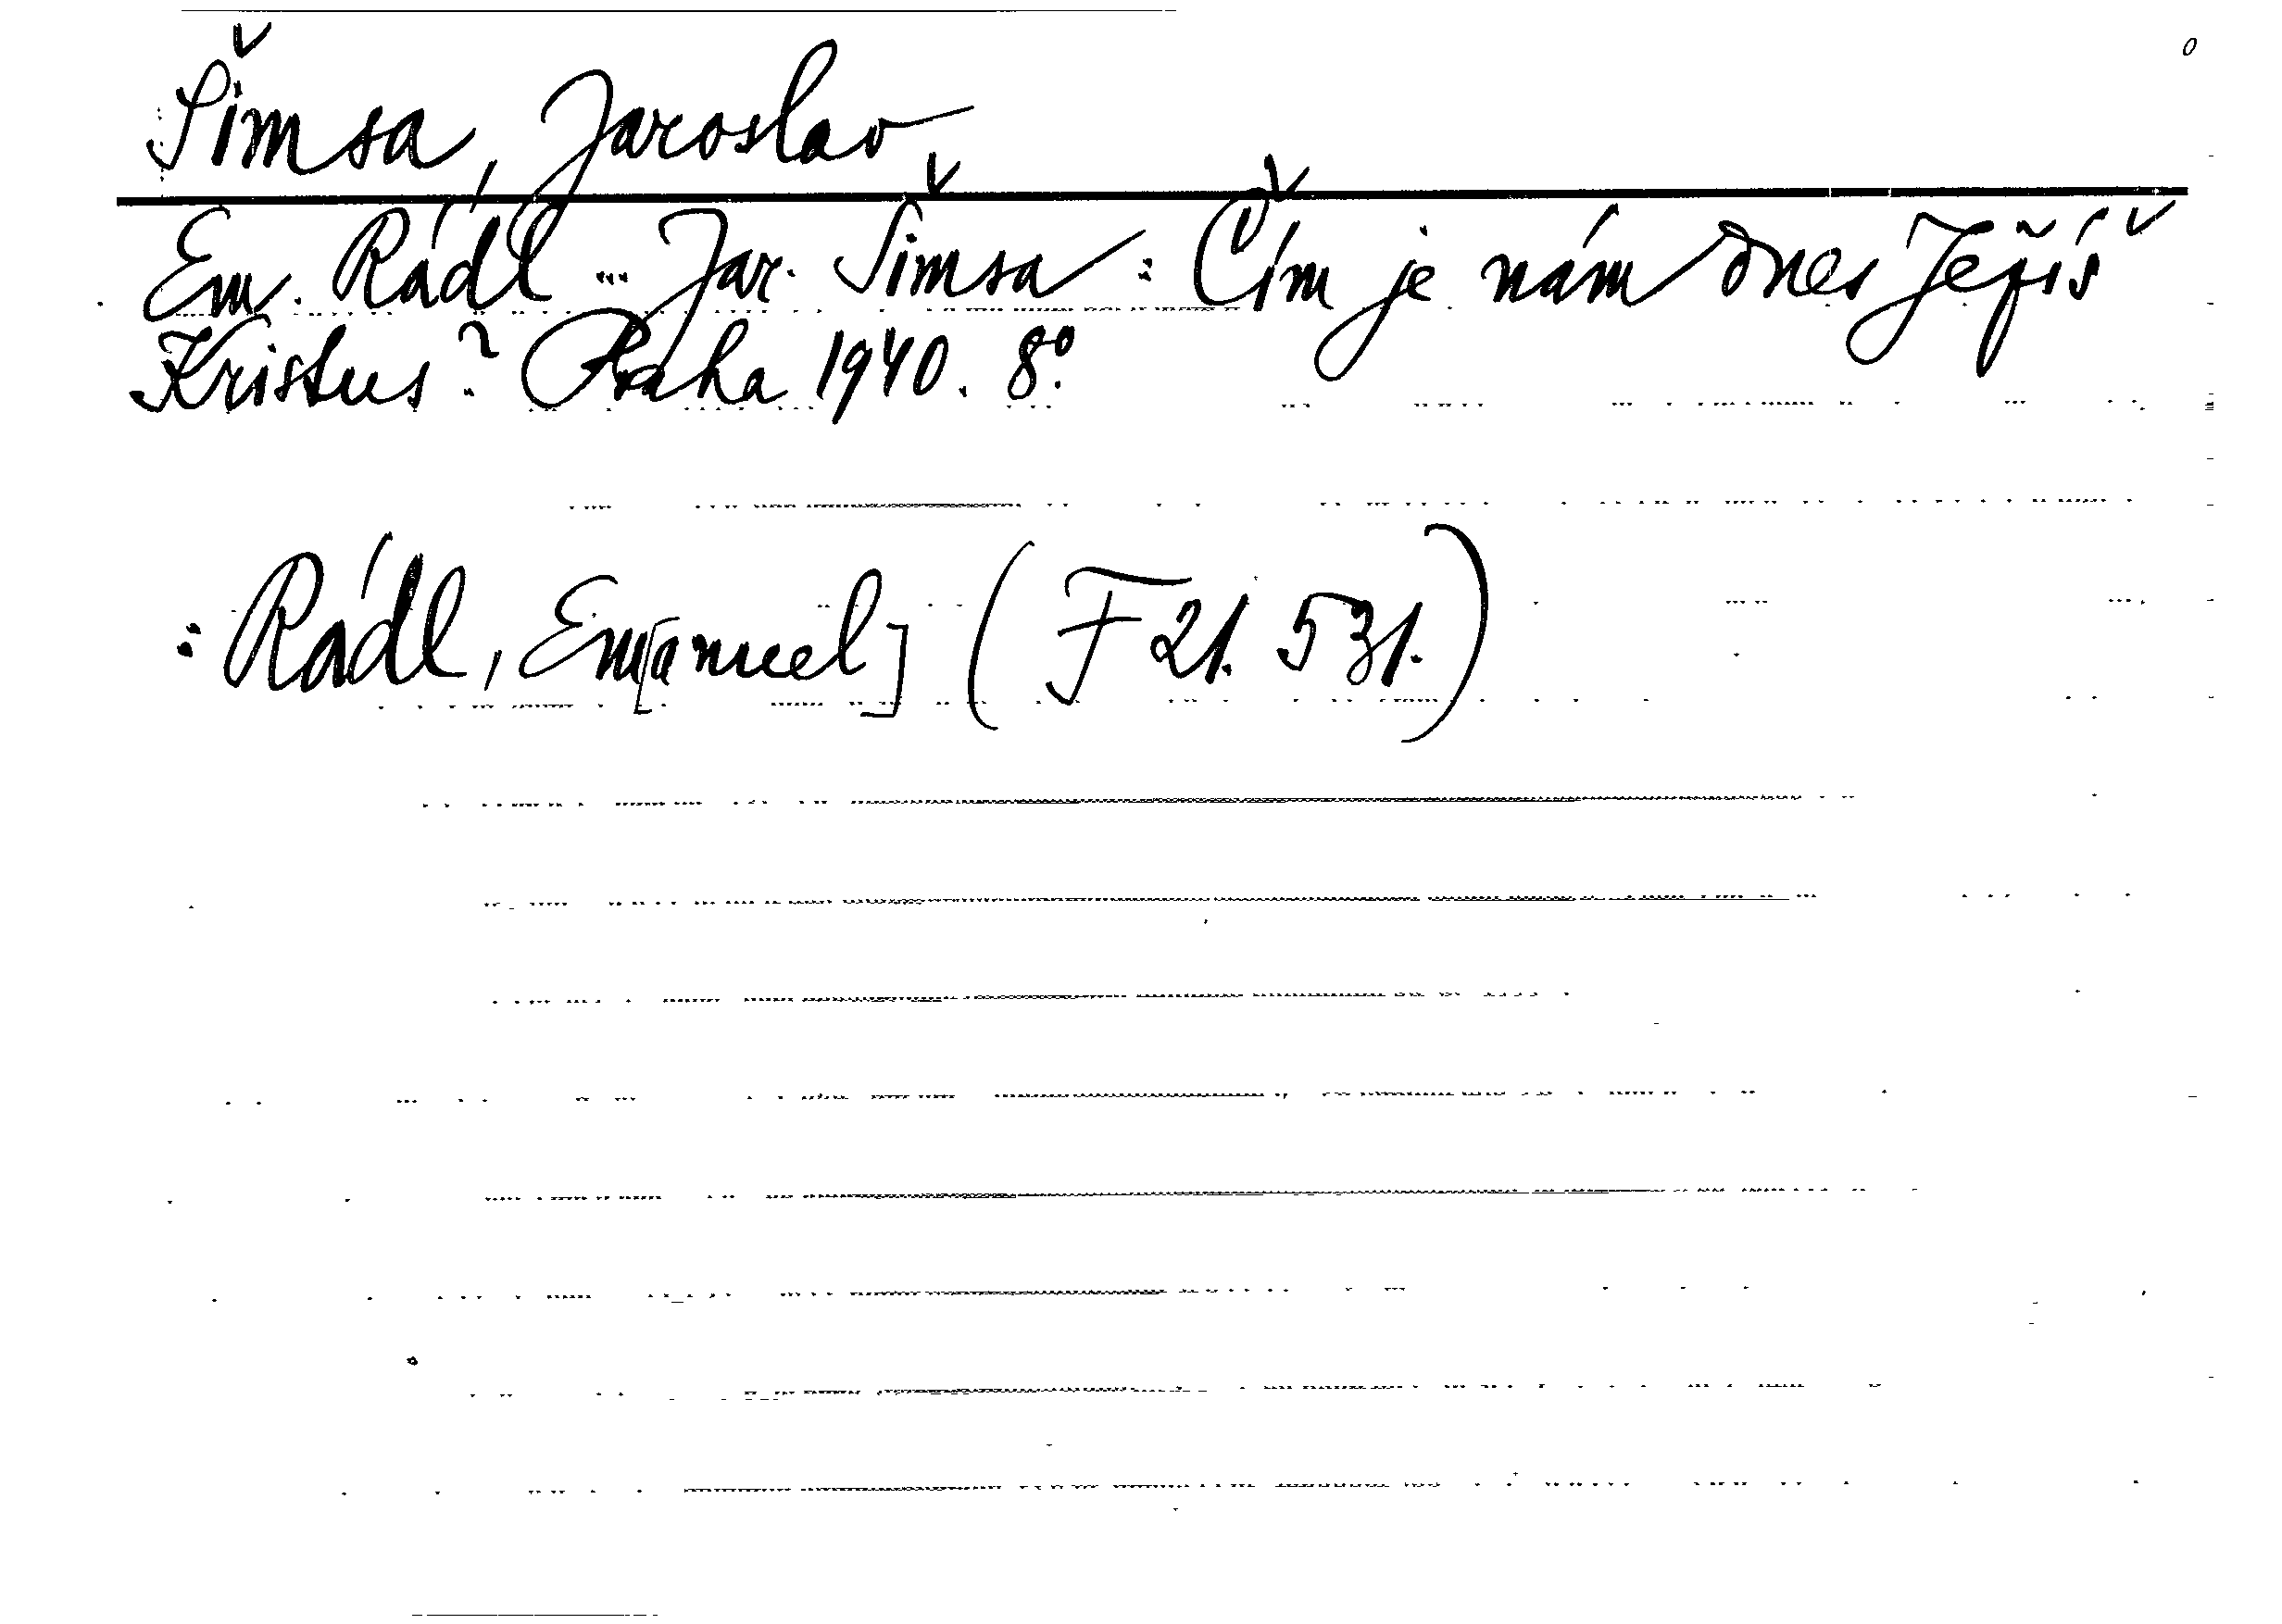 Šimsa, Jaroslav
Em. Rádl ... Jar. Šimsa: Čím je nám dnes Ježíš
Kristus? Praha 1940. 8º.
: Rádl, Em[anuel] (F 21. 531.)